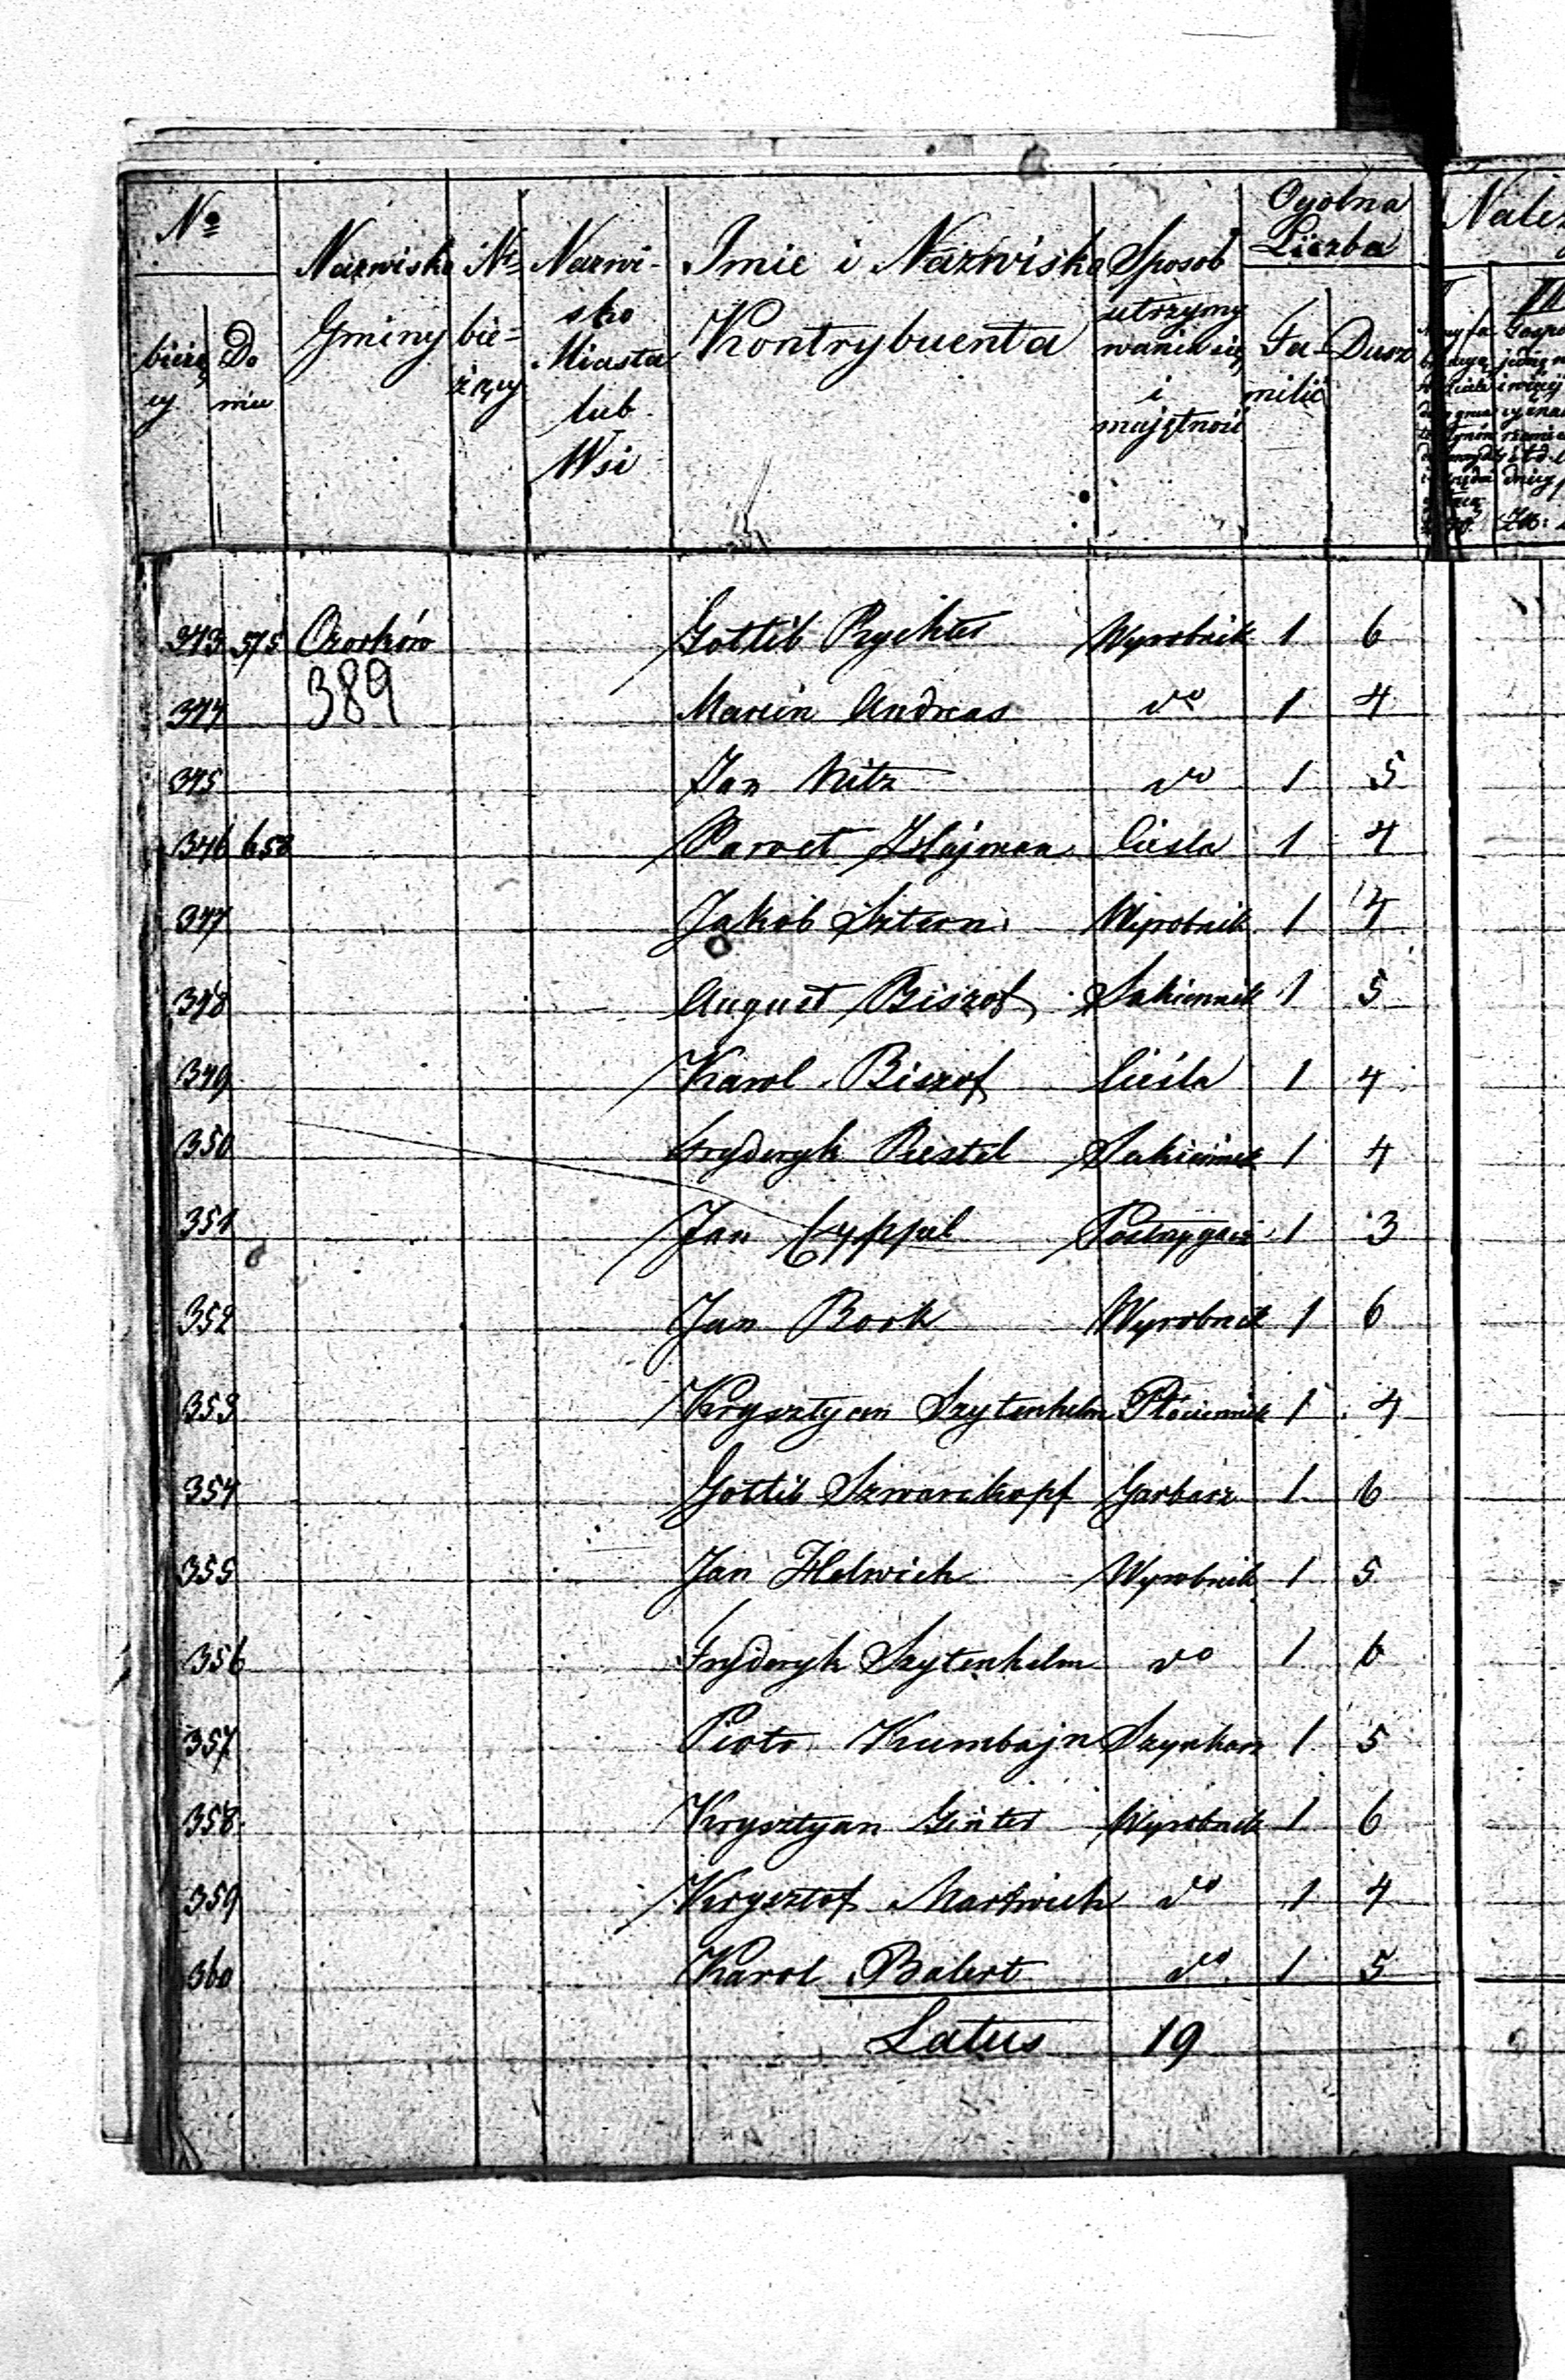 No
bieżą
cy
Do
mu
Nazwisko
Gminy
No
bie-
żący
Nazwi-
sko
Miasta
lub
Wsi
Imie i Nazwisko
Kontrybuenta
Sposob
utrzymy
wania się
i
majętność
Ogolna
Liczba
Fa-
milii
Dusz
343 515 Ozorków Gottlib Rychter Wyrobnik 1 6
389
344 Marcin Andreas do 1 4
345 Jan Nitz do 1 5
346 658 Cieśla 1 4
347 Jakob Sztern Wyrobnik 1 4
348 August Biszof Sukiennik 1 5
349 Karol Biszof Cieśla 1 4
350 Fryderyk Restel Sukiennik 1 4
351 Jan Cyppel Postrzygacz 1 3
352 Jan Book Wyrobnik 1 6
353 Krysztyan Szytenhelm Płóciennik 1 4
354 Gottlib Szwarckopf Garbarz 1 6
355 Jan Helwich Wyrobnik 1 5
356 Fryderyk Szytenhelm do 1 6
357 Piotr Kumbajn Szynkarz 1 5
358 Krysztyan Ginter Wyrobnik 1 6
359 Krysztof Markwich do 1 4
360 Karol Balert do 1 5
Latus 19